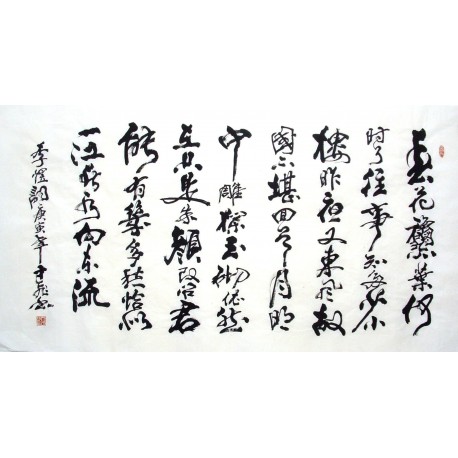 春花龝葉何
時了往事知多少小
樓昨夜又東風故
國不堪回首月明
中雕欄玉砌依然
在只是朱顏改问君
能有幾多愁恰似
一江春水向東流
李煜詞庚寅年